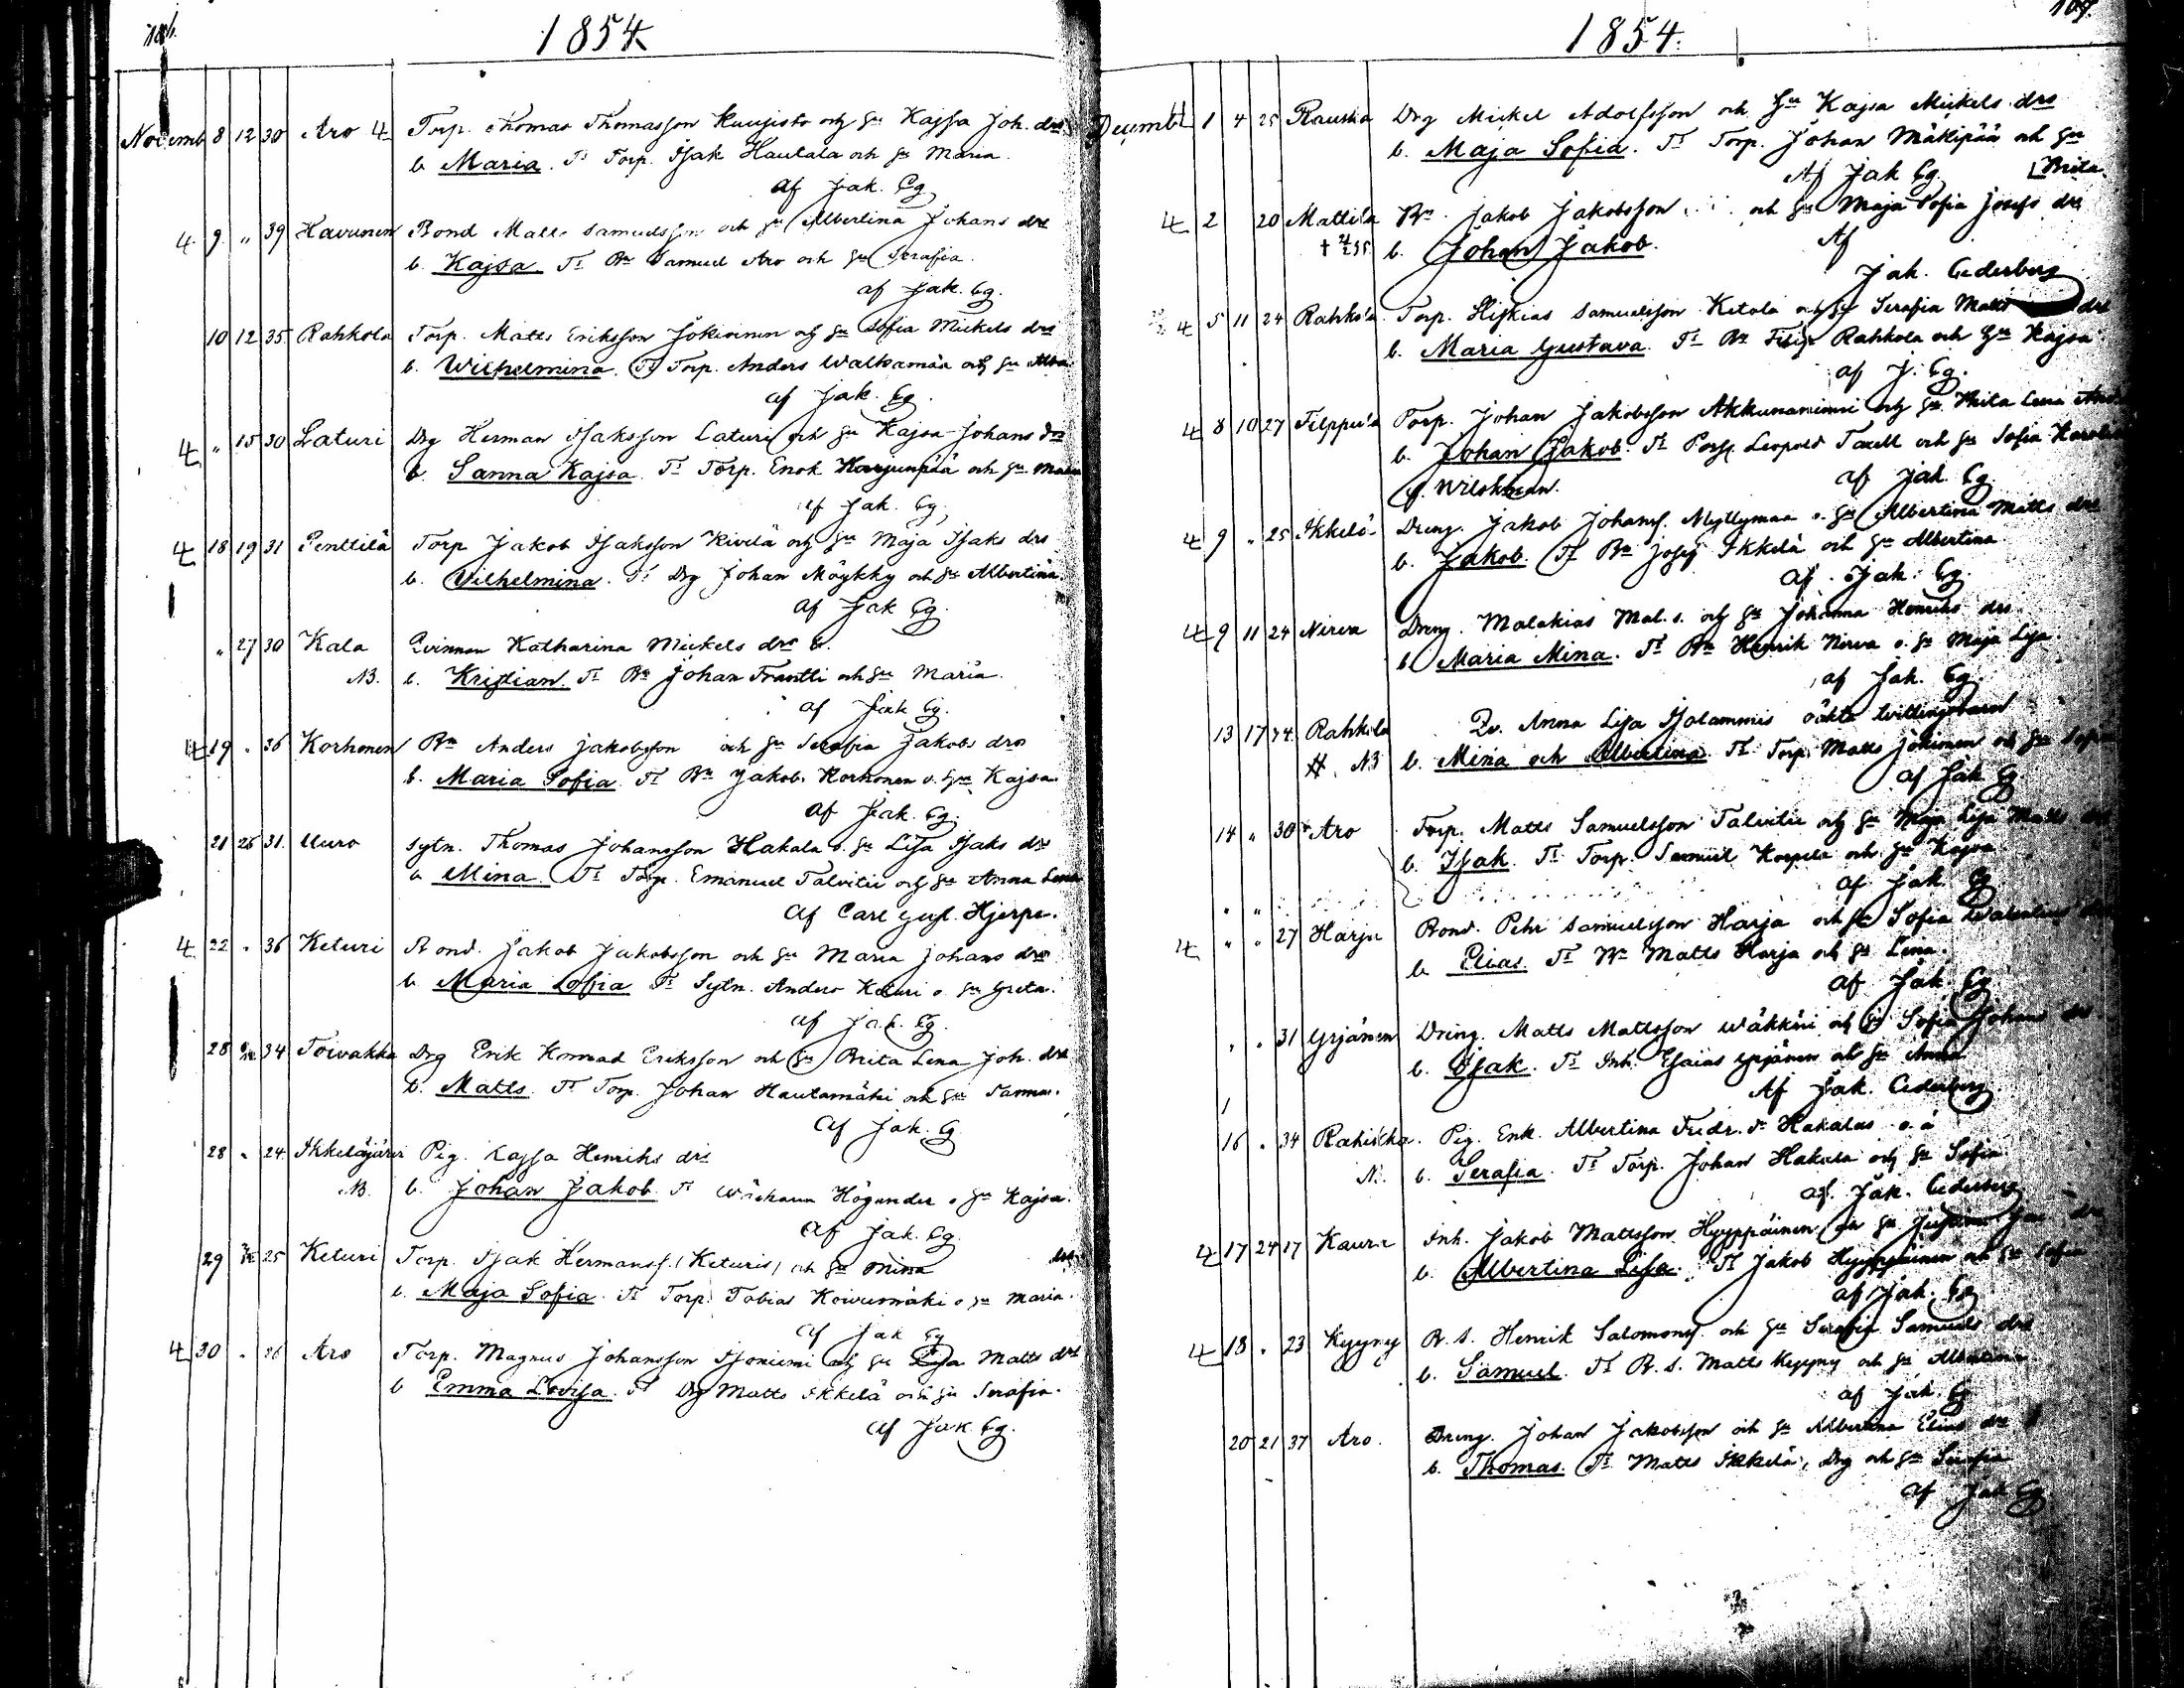 1854
Novemb 8 12 30 Aro Torp. Thomas Thomasson Kuujisto och Hu Kajsa Joh. drs
b. Maria. Tt Torp. Isak Hautala och Hu Maria.
af Jak. Cg
9 " 39 Havunen Bond Matts Samuelsson och Hu Albertina Johans drs
b. Kajsa Tt Bn Samuel Aro och Hu Serafia.
af Jak. Cg.
10 12 35 Rahkola Torp. Matts Eriksson Jokivinen och Hu Sofia Mickels drs
b. Wilhelmina. Tt Torp. Anders Walkamaa och Hu
af Jak. Cg.
" 15 30 Laturi Drg Herman Isaksson Laturi och Hu Kajsa Johans drs
b. Sanna Kajsa Tt Torp. Enok Harjunpää och Hu Maria
af Jak. Cg.
18 19 31 Penttilä Torp Jakob Isaksson Kivelä och Hu Maja Isaks drs
b. Vilhelmina. Tt Drg Johan Möykky och Hu Albertina.
af Jak Cg.
" 27 30 Kala Qvinnan Katharina Mickels drs
NB. b. Kristian. Tt Bn Johan Frantti och Hu Maria.
af Jak Cg.
19 " 36 Korhonen Bn Anders Jakobsson och Hu Serafia Jakobs drs
b. Maria Sofia. Tt Bn Jakob Korhonen o. Hu Kajsa.
af Jak. Cg.
21 26 31. Uuro Sytn. Thomas Johansson Hakala o. Hu Lisa Isaks drs
b Mina. Tt Torp. Emanuel Talvitie och Hu Anna Lena
af Carl Gust. Hjerpe.
22 " 36 Keturi Bond. Jakob Jakobsson och Hu Maria Johans drs
b. Maria Sofia Tt Sytn. Anders Keturi o. Hu Greta.
af Jak. Cg.
28 34 Toivakka Drg Erik Konrad Eriksson och Hu Brita Lena Joh. drs
b. Matts. Tt Torp. Johan Hautamäki och Hu Sanna.
af Jak. Cg
28 " 24 Ikkeläjärvi Pig. Kajsa Henriks drs
NB. b. Johan Jakob Tt Högander o Hu Kajsa.
af Jak. Cg.
29 25 Keturi Torp. Isak Hermanss. (Keturis) och Hu Mina drs
b. Maja Sofia. Tt Torp. Tobias Koivumäki o Hu Maria.
af Jak Cg
30 " 26 Aro Torp. Magnus Johansson och Hu Lisa Matts drs
b Emma Lovisa. Tt Drg Matts Ikkelä och Hu Serafia.
af Jak. Cg.
1854.
Decembr 1 4 25 Rauska Drg Mickel Adolfsson och Hu Kajsa Mickels drs
b. Maja Sofia. Tt Torp. Johan Mäkipää och Hu
Af Jak Cg. Brita.
2 20 Mattila Bn. Jakob Jakobsson och Hu Maja Sofia Josefs drs
b. Johan Jakob. Af
Jak. Cederberg
5 11 24 Rahkola Torp. Hiskias Samuelsson Ketola och Hu Serafia Matts drs
b. Maria Gustava. Tt Bn Filip Rahkola och Hu Kajsa
af J. Cg.
8 10 27 Filppula Torp. Johan Jakobsson Akkunaniemi och Hu Brita Lena
b. Johan Jakob. Tt Leopold Taxell och Hu Sofia
f. Wilskman. af Jak. Cg.
9 " 25 Ikkelä Dreng. Jakob Johanss. Myllymaa o. Hu Albertina Matts drs
b. Jakob. Tt Bn Josef Ikkelä och Hu Albertina.
af Jak. Cg.
9 11 24 Nirva Dreng. Malakias Mal. s. och Hu Johanna Henriks drs.
b. Maria Mina. Tt Bn Henrik Nirva o. Hu Maja Lisa.
af Jak. Cg.
13 17 Rahkola Qv. Anna Lisa oäkta tvillingbarn
NB b. Mina och Albertina. Tt Torp. Matts Jokinen och Hu
af Jak Cg
14 " 30 Aro Torp. Matts Samuelsson Talvitie och Hu Maja Lisa Matts
b. Isak. Tt Torp. Samuel Korpela och Hu Kajsa.
af Jak. Cg
" " 27 Harju Bond. Pehr Samuelsson Harja och Hu Sofia
b. Elias. Tt Matts Harja och Hu Lena.
af Jak. Cg
" " 31 Yrjänen Dreng. Matts Mattsson och Hu Sofia Johans drs
b. Isak. Tt Inh. Esaias Yrjänen och Hu Anna
Af Jak. Cederberg.
16 " 34 Pig. Enk. Albertina Fredr. dr Hakalas
b. Serafia. Tt Torp. Johan Hakala och Hu Sofia
af Jak. Cederberg
17 24 17 Inh. Jakob Mattsson Hyyppäinen och Hu
b. Albertina Lisa. Tt Jakob Hyyppäinen och Hu Sofia
af Jak. Cg
18 " 23 Kyyny B. s. Henrik Salomonss. och Hu Serafia Samuels drs
b. Samuel. Tt B. s. Matts Kyyny och Hu Albertina.
af Jak. Cg
20 21 37 Aro. Dreng. Johan Jakobsson och Hu Albertina Elias drs
b. Thomas. Tt Matts Ikkelä, Drg och Hu Serafia
af Jak Cg